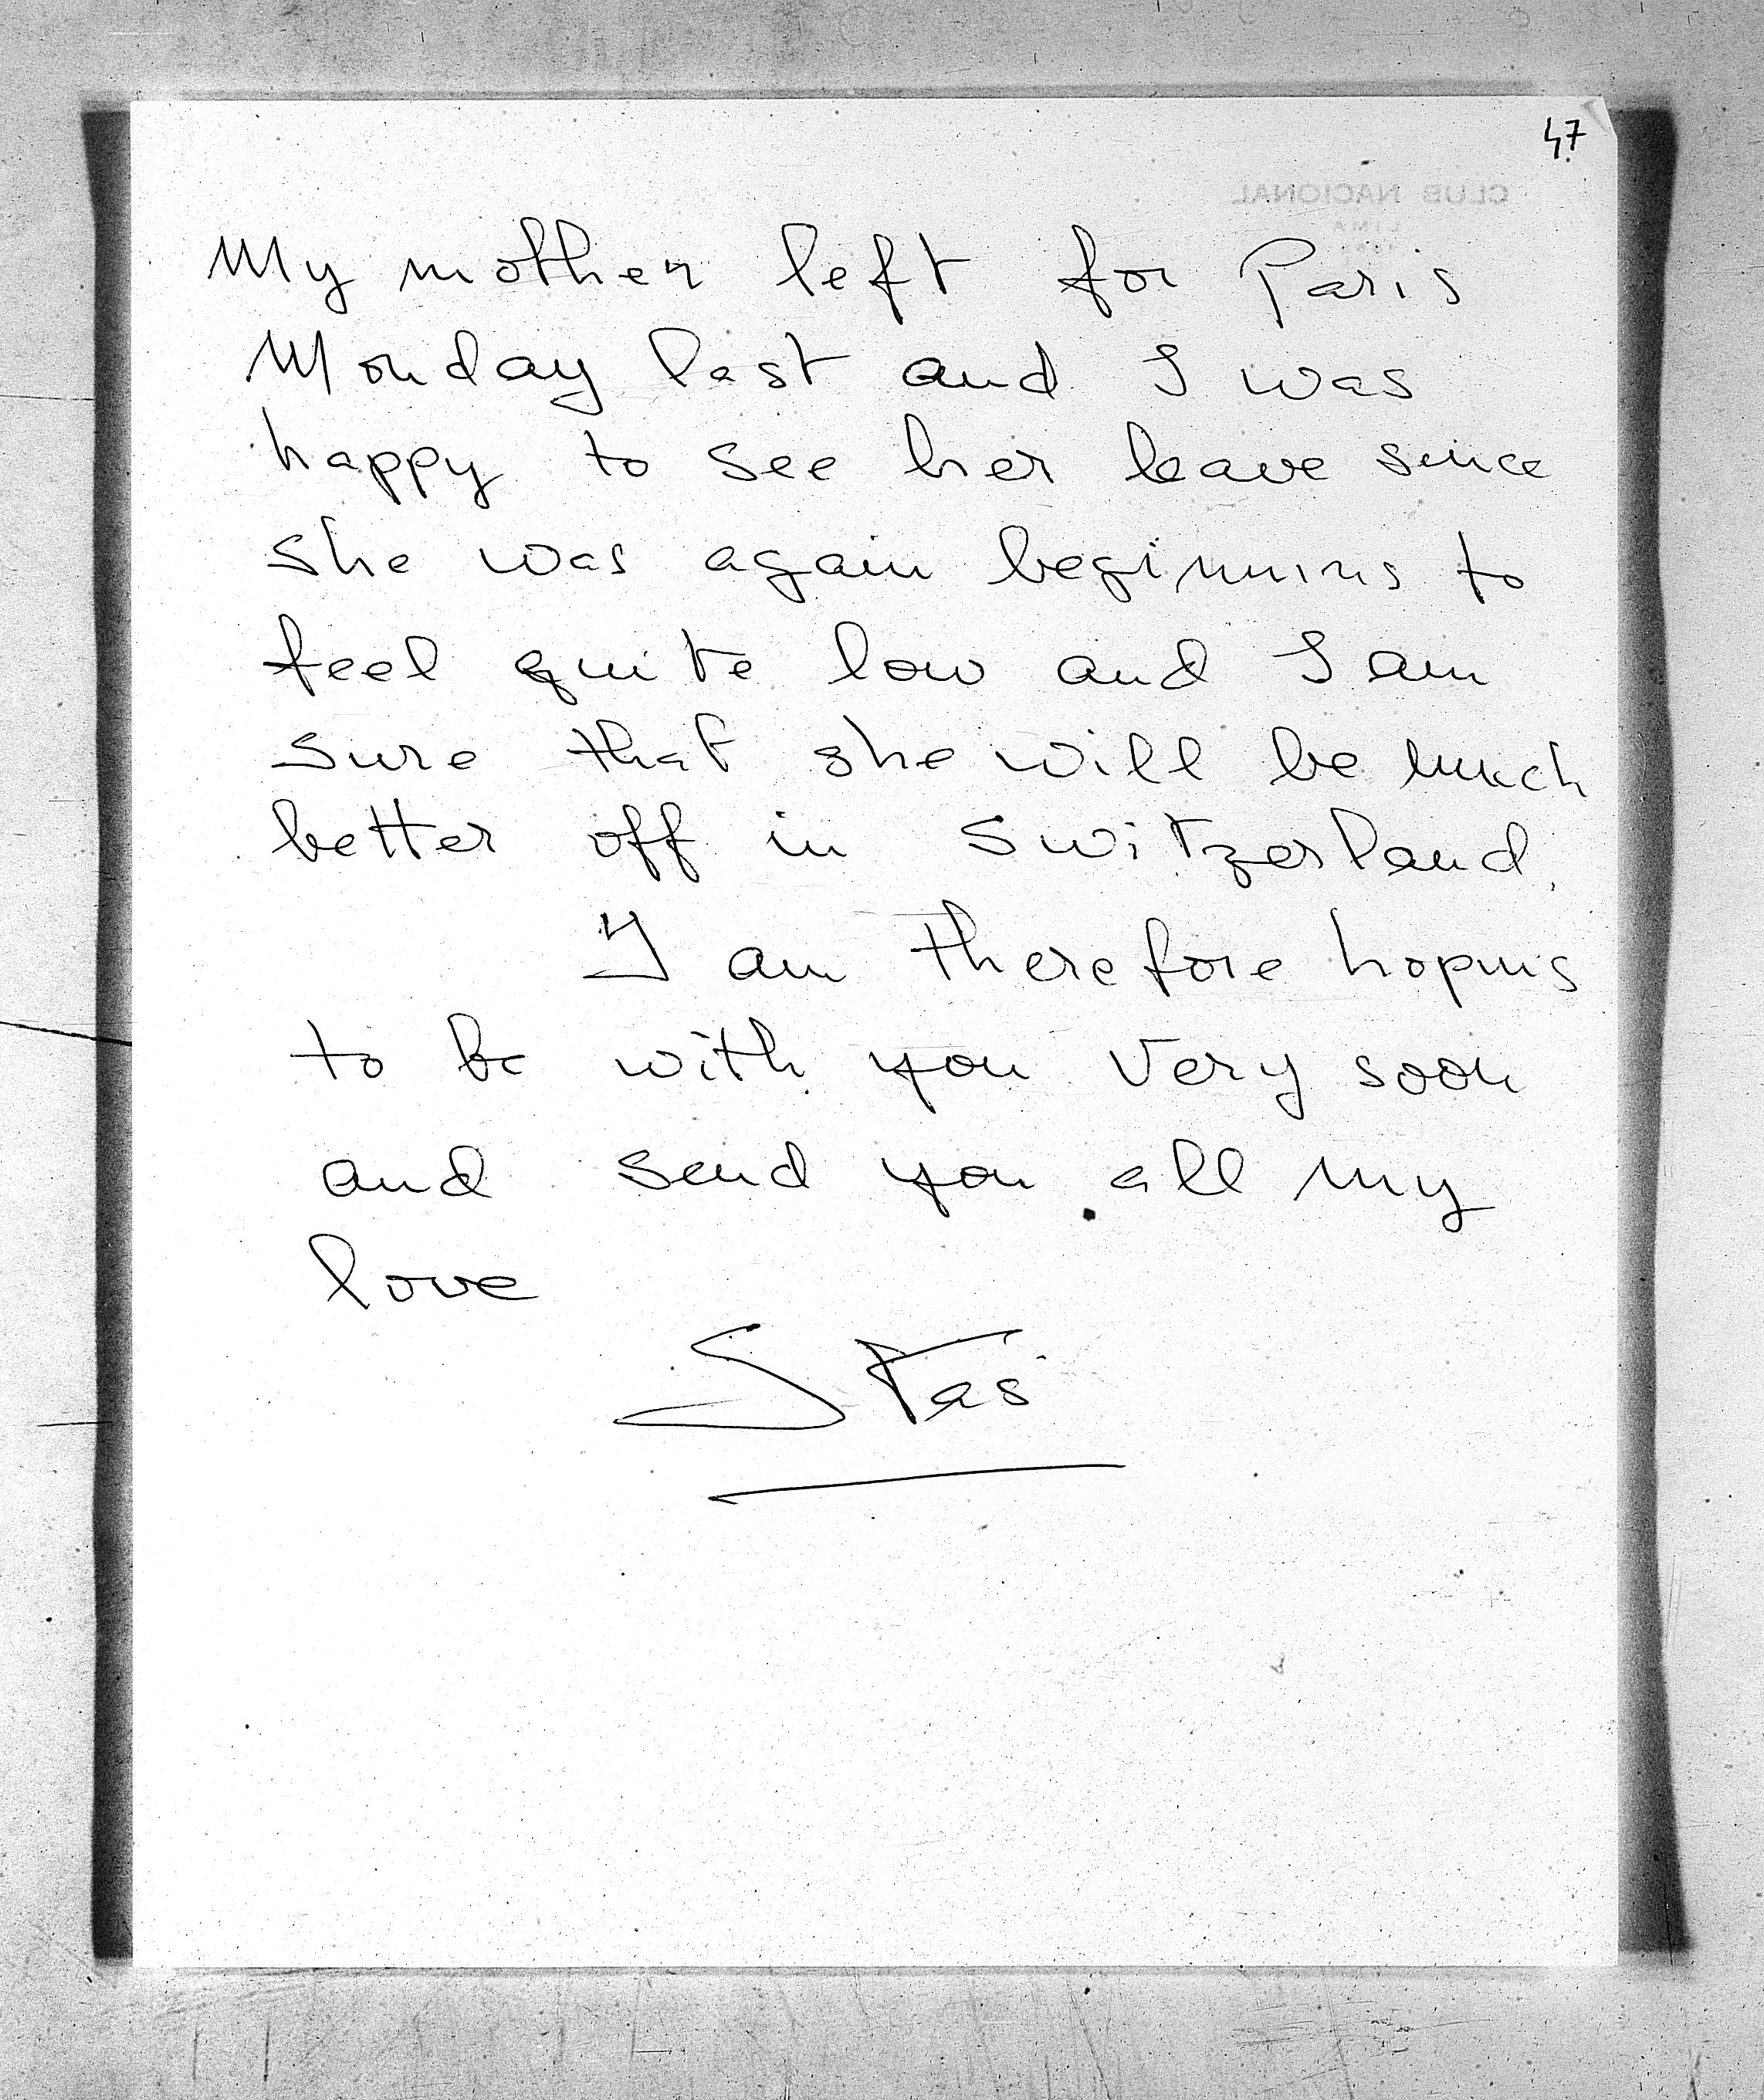 47
CLUB NACIONAL
LIMA
My mother left for Paris
Monday last and I was
happy to see her leave since
she was again beginning to
feel quite low and I am
sure that she will be much
better off in Switzerland.
I am therefore hoping
to be with you very soon
and send you all my
love
Stas